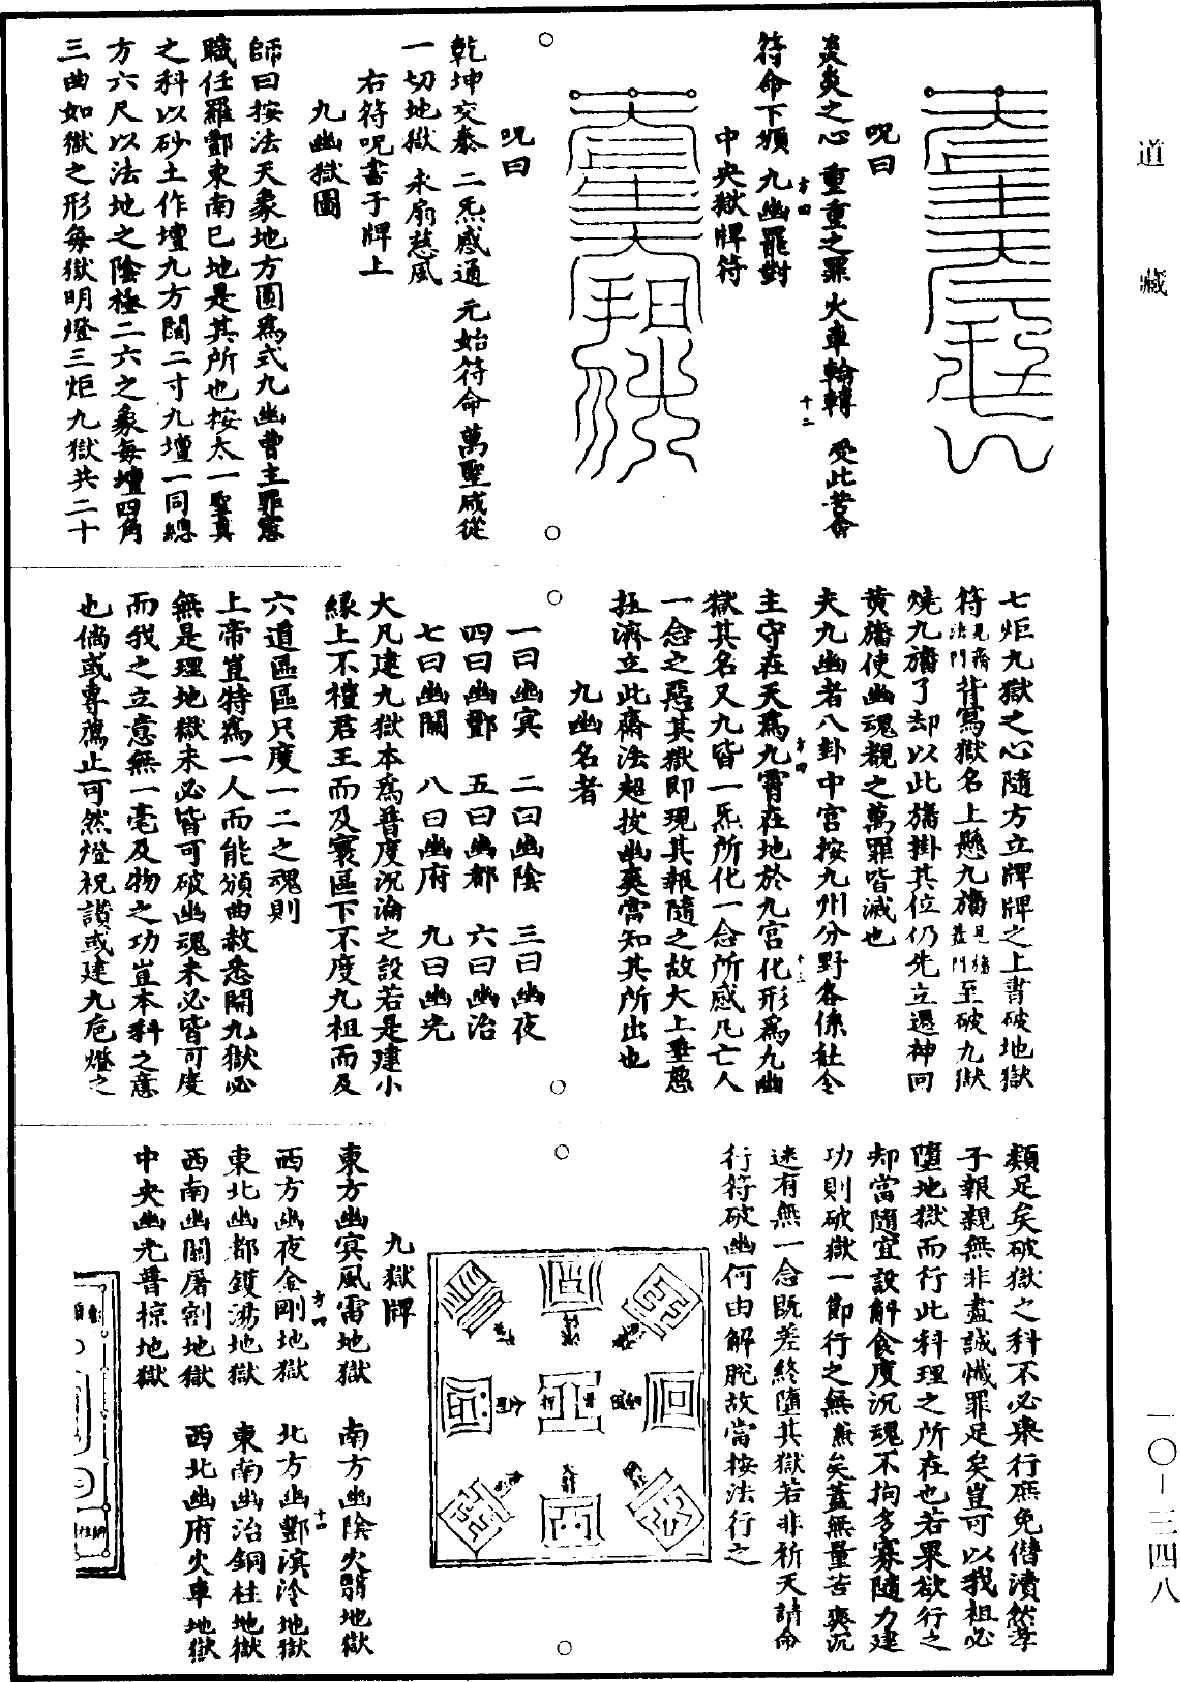 道藏
呪曰
炎炎之心 重重之罪 火車輪轉 受此苦會
符命下頒 九幽罷對
中央獄牌符
呪曰
乾坤交泰 二炁感通 元始符命 萬聖咸從
一切地獄 永扇慈風
右符呪書于牌上
九幽獄圖
師曰按法天象地方圓爲式九幽曹主罪惡
職任羅酆東南巳地是其所也按太一聖真
之科以砂土作壇九方闊二寸九壇一同總
方六尺以法地之陰極二六之象每壇四角
三曲如獄之形每獄明燈三炬九獄共二十
七炬九獄之心隨方立牌牌之上書破地獄
符見齋法門背寫獄名上懸九旛見旛蓋門至破九獄
燒九旛了却以此旛掛其位仍先立遷神回
黃旛使幽魂覩之萬罪皆滅也
夫九幽者八卦中宮按九州分野各係社令
主守在天爲九霄在地於九宮化形爲九幽
獄其名又九皆一炁所化一念所感凡亡人
一念之惡其獄即現其報隨之故大上垂慈
拯濟立此齋法超拔幽爽當知其所出也
九幽名者
一曰幽冥 二曰幽陰 三曰幽夜
四曰幽酆 五曰幽都 六曰幽治
七曰幽關 八曰幽府 九曰幽光
大凡建九獄本爲普度沉淪之設若是建小
緣上不禮君王而及寰區下不度九祖而及
六道區區只度一二之魂則
上帝豈特爲一人而能頒曲赦悉開九獄必
無是理地獄未必皆可破幽魂未必皆可度
而我之立意無一毫及物之功豈本科之意
也倘或專薦止可然燈祝讚或建九卮燈之
類足矣破獄之科不必舉行庶免僣瀆然孝
子報親無非盡誠懺罪足矣豈可以我祖必
墮地獄而行此科理之所在也若果欲行之
却當隨宜設斛食度沉魂不拘多寡隨力建
功則破獄一節行之無慊矣蓋無量苦爽沉
迷有無一念既差終墮其獄若非祈天請命
行符破幽何由解脫故當按法行之
九獄牌
東方幽冥風雷地獄 南方幽陰火翳地獄
西方幽夜金剛地獄 北方幽酆溟泠地獄
東北幽都鑊湯地獄 東南幽治銅柱地獄
西南幽關屠割地獄 西北幽府火車地獄
中央幽光普掠地獄
一〇—三四八